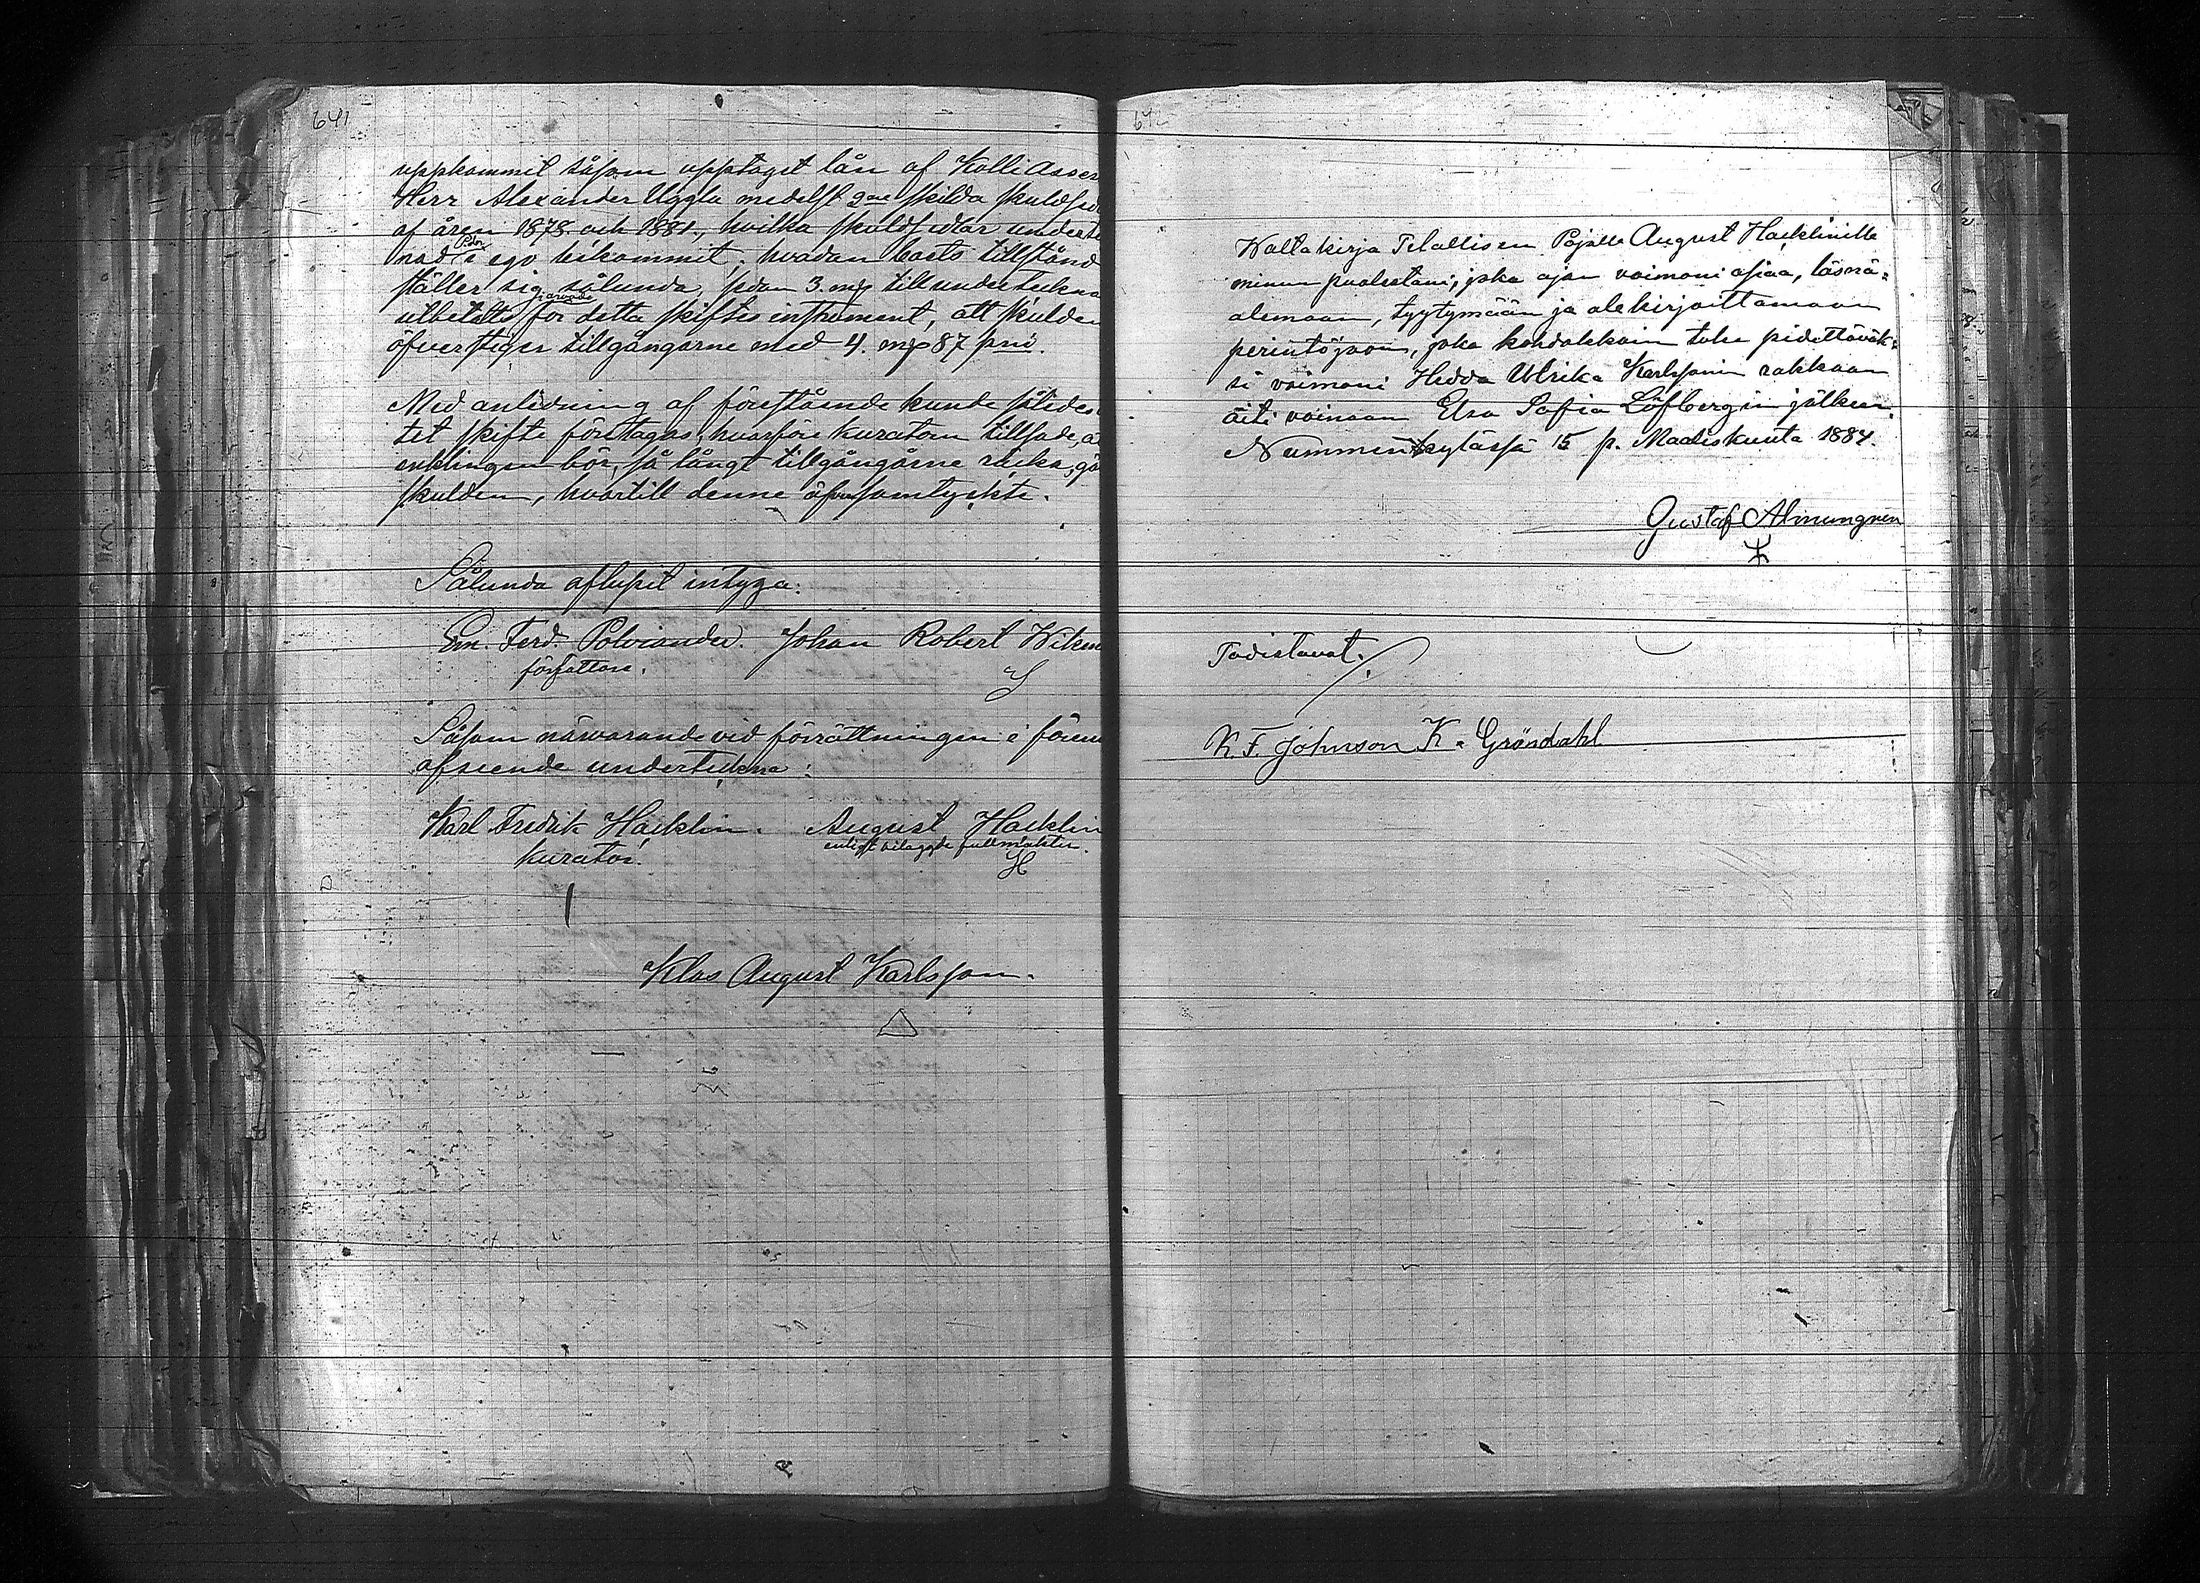 641
uppkommit såsom upptaget lån af Kolli Asses
Herr Alexander Uggla medelst 2ne skilda skuldsed
af åren 1878 och 1881, hvilka skuldsedlar underte
nad Polv i ego bekommit; hvadan boets tillstånd
ställer sig sålunda, sedan 3. mk till underteckna
utbetalts i arvode för detta skiftes instrument, att skulden
öfverstiger tillgångarne med 4. mk 87 pni.
Med anledning af förestående kunde således
tet skifte företagas, hvarföre kuratorn tillsade, a
enklingen bör, så långt tillgångarne räcka, gä
skulden, hvartill denne äfven samtyckte.
Sålunda aflupit intyga:
Em. Ferd. Polviander. Johan Robert Wikm
författare.
Såsom närvarande vid förrättningen i föree
afseende underteckna:
Karl Fredrik Häcklin. August Häcklin
kurator. enligt bilagde fullmakter.
Klas August Karlsson.
642
Waltakirja Tilallisen Pojalle August Häcklinille
minun puolestani, joka ajaa vaimoni asiaa, läsnä=
olemaan, tyytymään ja alekirjoittamaan
perintöjaon, joka kohdakkoin tulee pidettäväk=
si vaimoni Hedda Ulrika Karlssonin rakkaan
äiti vainaan Eva Sofia Löfbergin jälkeen.
Nummenkylässä 15 p. Maaliskuuta 1884.
Gustaf Almungren
Todistavat:
K. F. Johnson K. Gröndahl